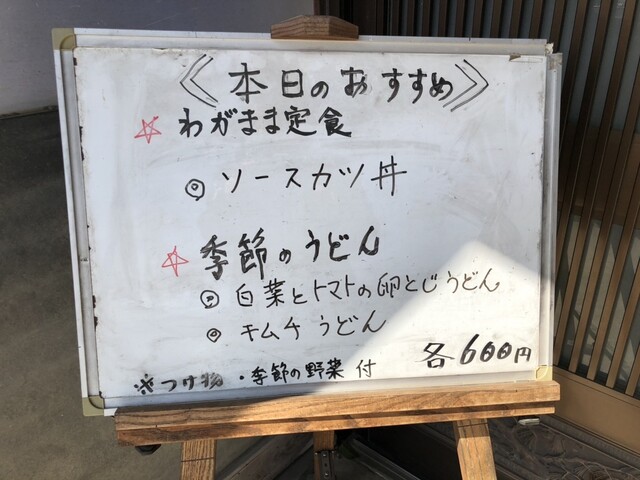 《本日のおすすめ》
☆ わがまま定食
◎ ソースカツ丼
☆ 季節のうどん
◎ 白菜とトマトの卵とじうどん
◎ キムチうどん
各600円
※つけ物・季節の野菜付